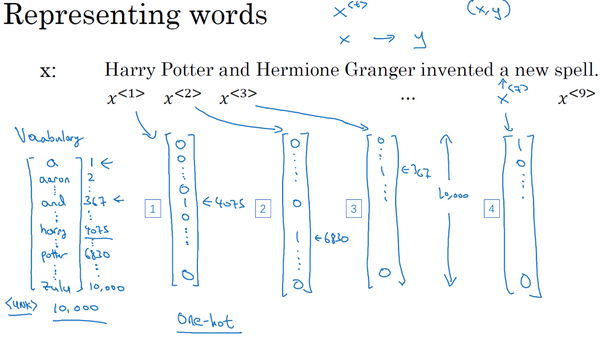 Representing words
x<t>
(x,y)
x → y
x: Harry Potter and Hermione Granger invented a new spell.
x<1> x<2> x<3> ... x<7> x<9>
Vocabulary
a 1 ←
aaron 2
⋮ ⋮
and 367 ←
⋮ ⋮
harry 4075
⋮ ⋮
potter 6830
⋮ ⋮
zulu 10,000
<UNK> 10,000
1
0
0
⋮
0
1 ← 4075
0
⋮
0
2
0
⋮
0
1 ← 6830
⋮
0
3
0
⋮
1 ← 367
⋮
0
10,000
4
1
0
⋮
0
One-hot